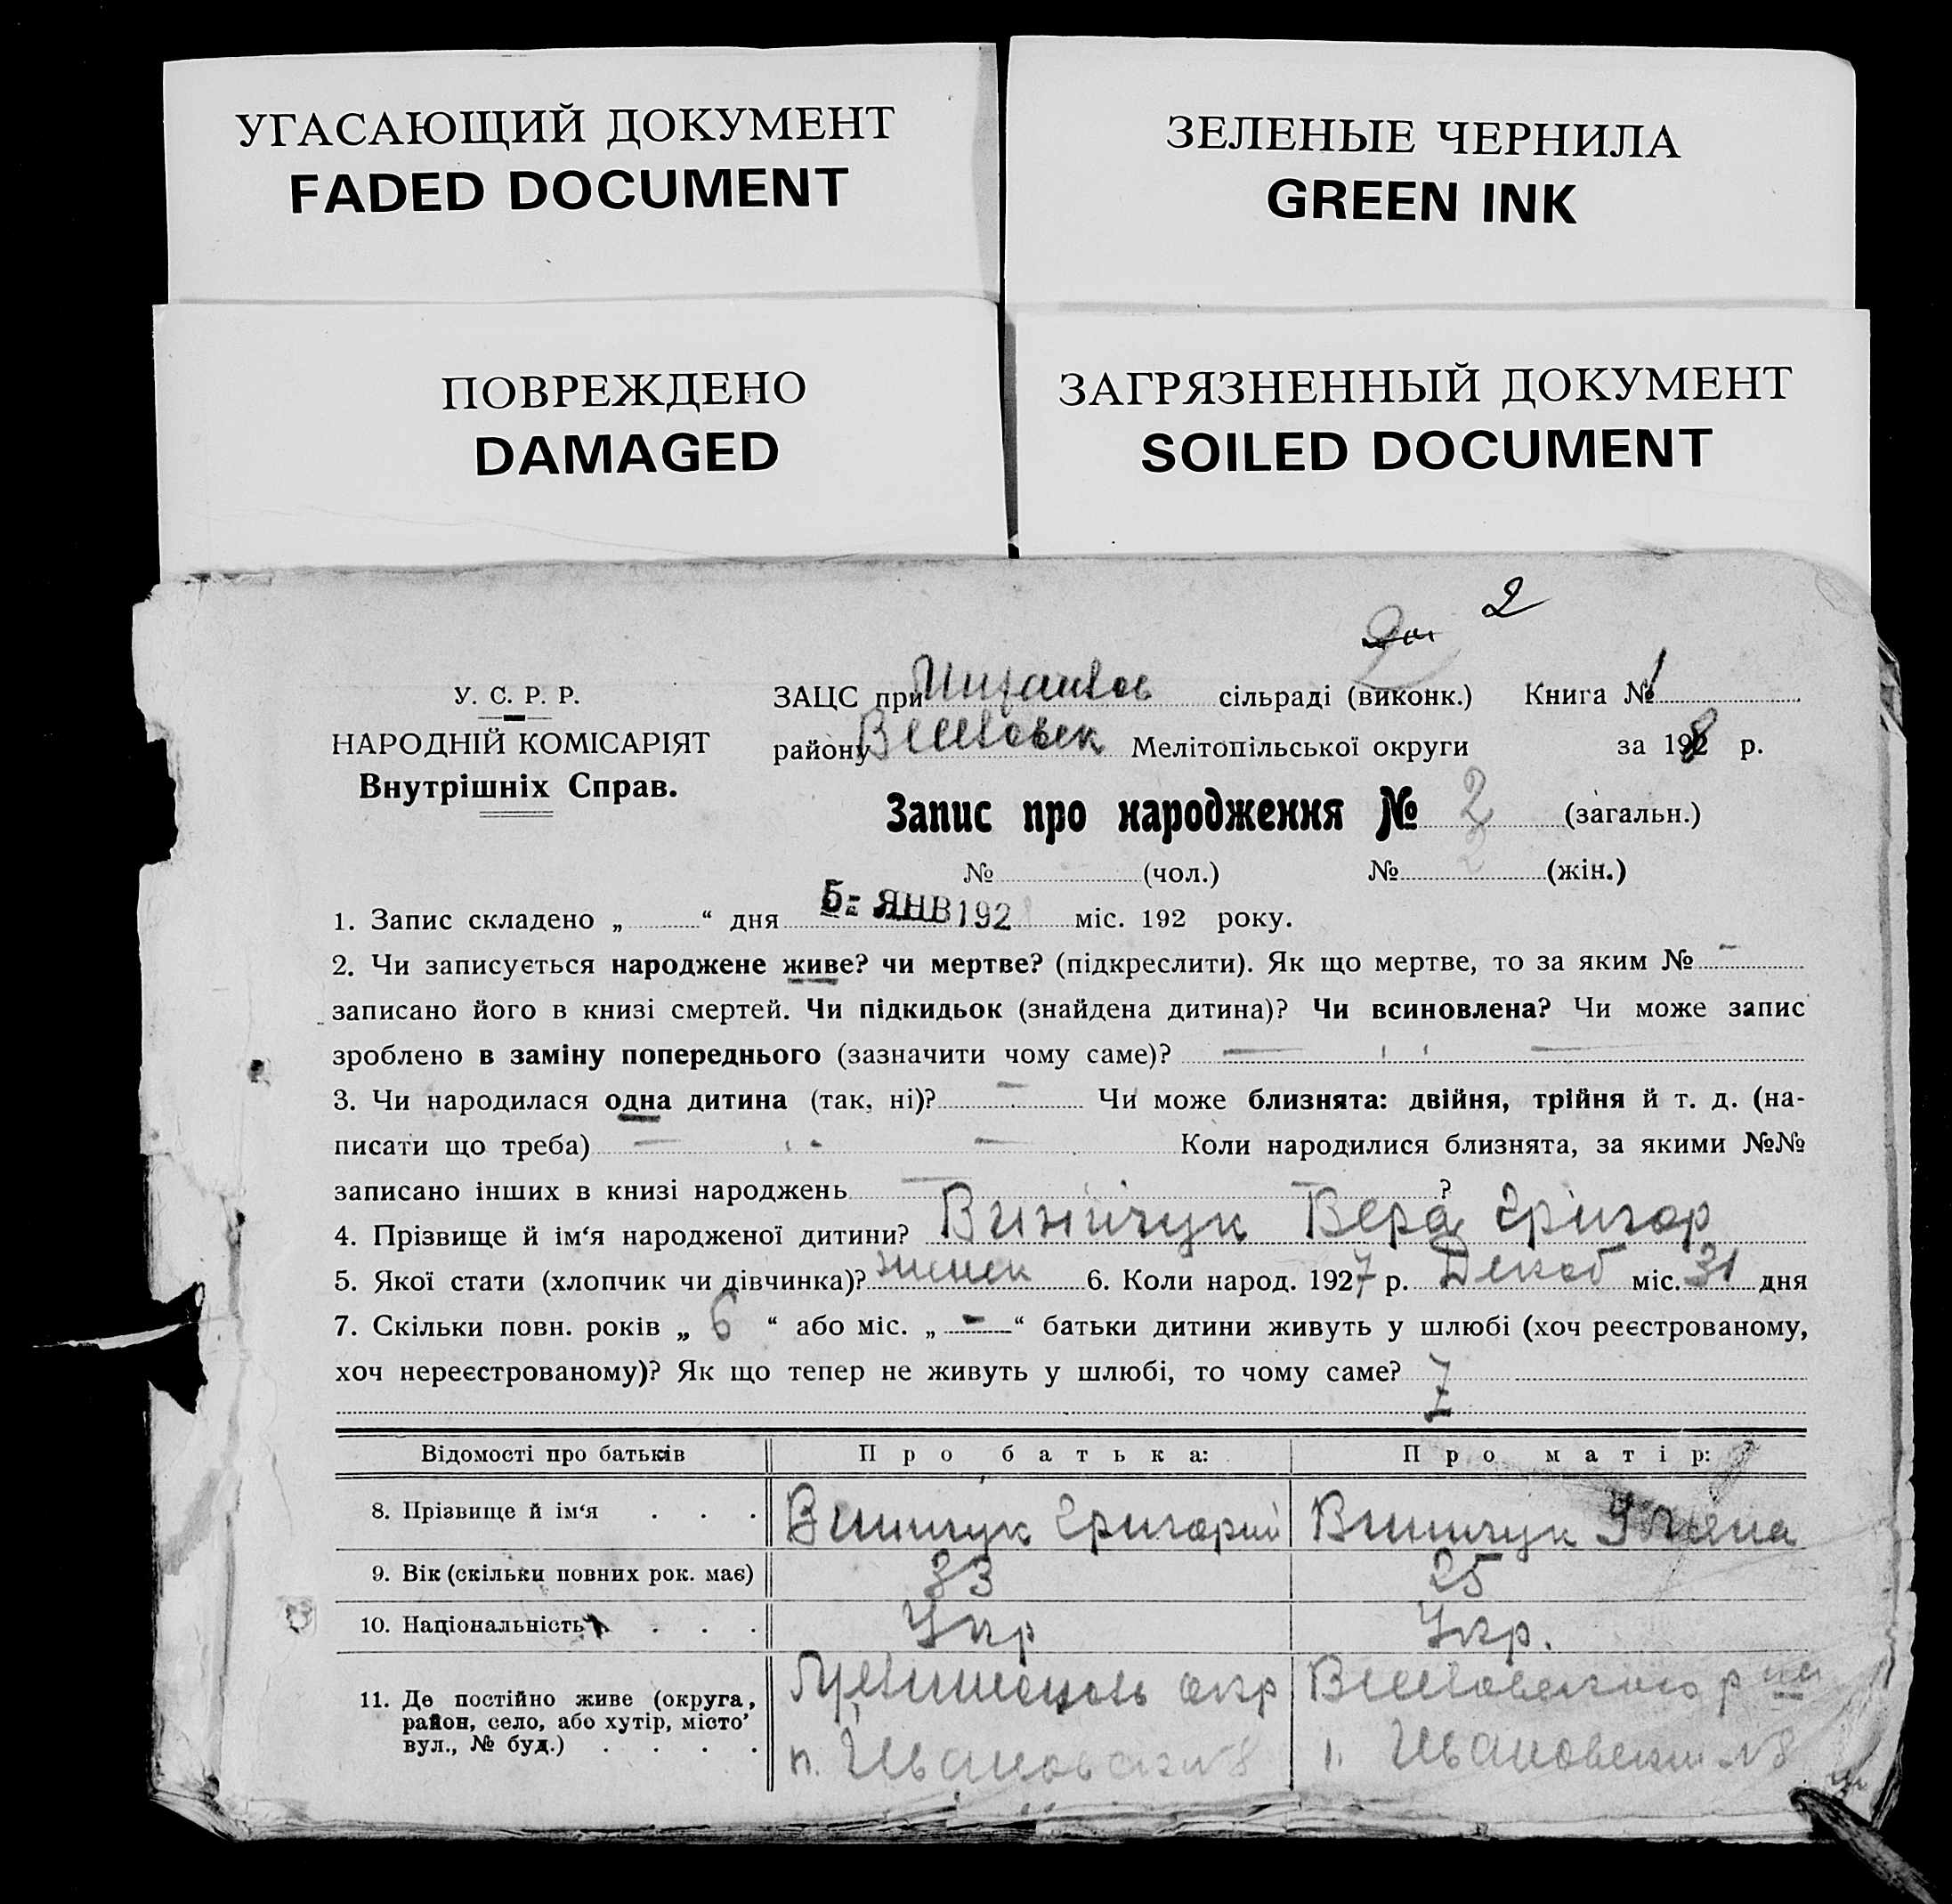 УГАСАЮЩИЙ ДОКУМЕНТ
FADED DOCUMENT
ЗЕЛЕНЫЕ ЧЕРНИЛА
GREEN INK
ПОВРЕЖДЕНО
DAMAGED
ЗАГРЯЗНЕННЫЙ ДОКУМЕНТ
SOILED DOCUMENT
2
У. С. Р. Р.
НАРОДНІЙ КОМІСАРІЯТ
Внутрішніх Справ.
ЗАЦС при сільраді (виконк.) Книга № 1
району Мелітопільської округи за 1928 р.
Запис про народження № 2 (загальн.)
№ (чол.) № 2 (жін.)
1. Запис складено „ “ дня 5- ЯНВ 192 міс. 192 року.
2. Чи записується народжене живе? чи мертве? (підкреслити). Як що мертве, то за яким № —
записано його в книзі смертей. Чи підкидьок (знайдена дитина)? Чи всиновлена? Чи може запис
зроблено в заміну попереднього (зазначити чому саме)?
3. Чи народилася одна дитина (так, ні)? — Чи може близнята: двійня, трійня й т. д. (на-
писати що треба) Коли народилися близнята, за якими №№
записано інших в книзі народжень ?
4. Прізвище й ім‘я народженої дитини? Винничук Вера Григор
5. Якої стати (хлопчик чи дівчинка)? женск 6. Коли народ. 1927 р. Декаб міс. 31 дня
7. Скільки повн. років „ 6 “ або міс. „ — “ батьки дитини живуть у шлюбі (хоч реєстрованому,
хоч нереєстрованому)? Як що тепер не живуть у шлюбі, то чому саме?
Відомості про батьків
Про батька:
Про матір:
8. Прізвище й ім‘я . . .
Винничук Григорий
Винничук
9. Вік (скільки повних рок. має)
33
25
10. Національність . . .
Укр
Укр.
11. Де постійно живе (округа,
район, село, або хутір, місто’
вул., № буд.) . . . .
окр
п. №8
Ивановки №8